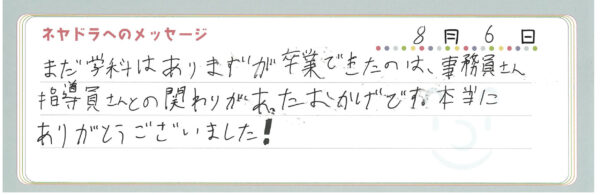 ネヤドラへのメッセージ
8月6日
まだ学科はありますが卒業できたのは、事務員さん
指導員さんとの関わりがあったおかげです。本当に
ありがとうございました!